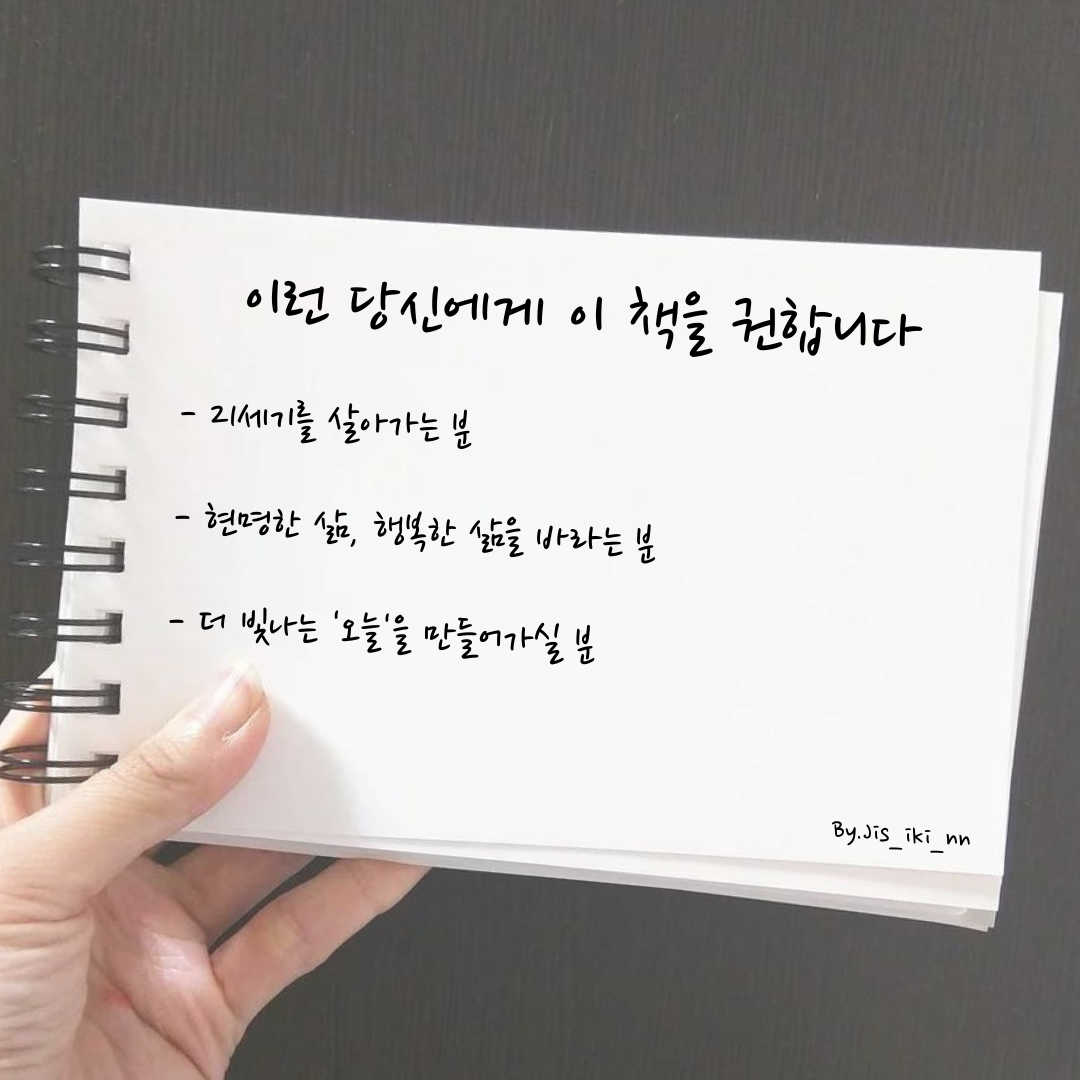 이런 당신에게 이 책을 권합니다
- 21세기를 살아가는 분
- 현명한 삶, 행복한 삶을 바라는 분
- 더 빛나는 '오늘'을 만들어가실 분
By.Jis_iki_nn